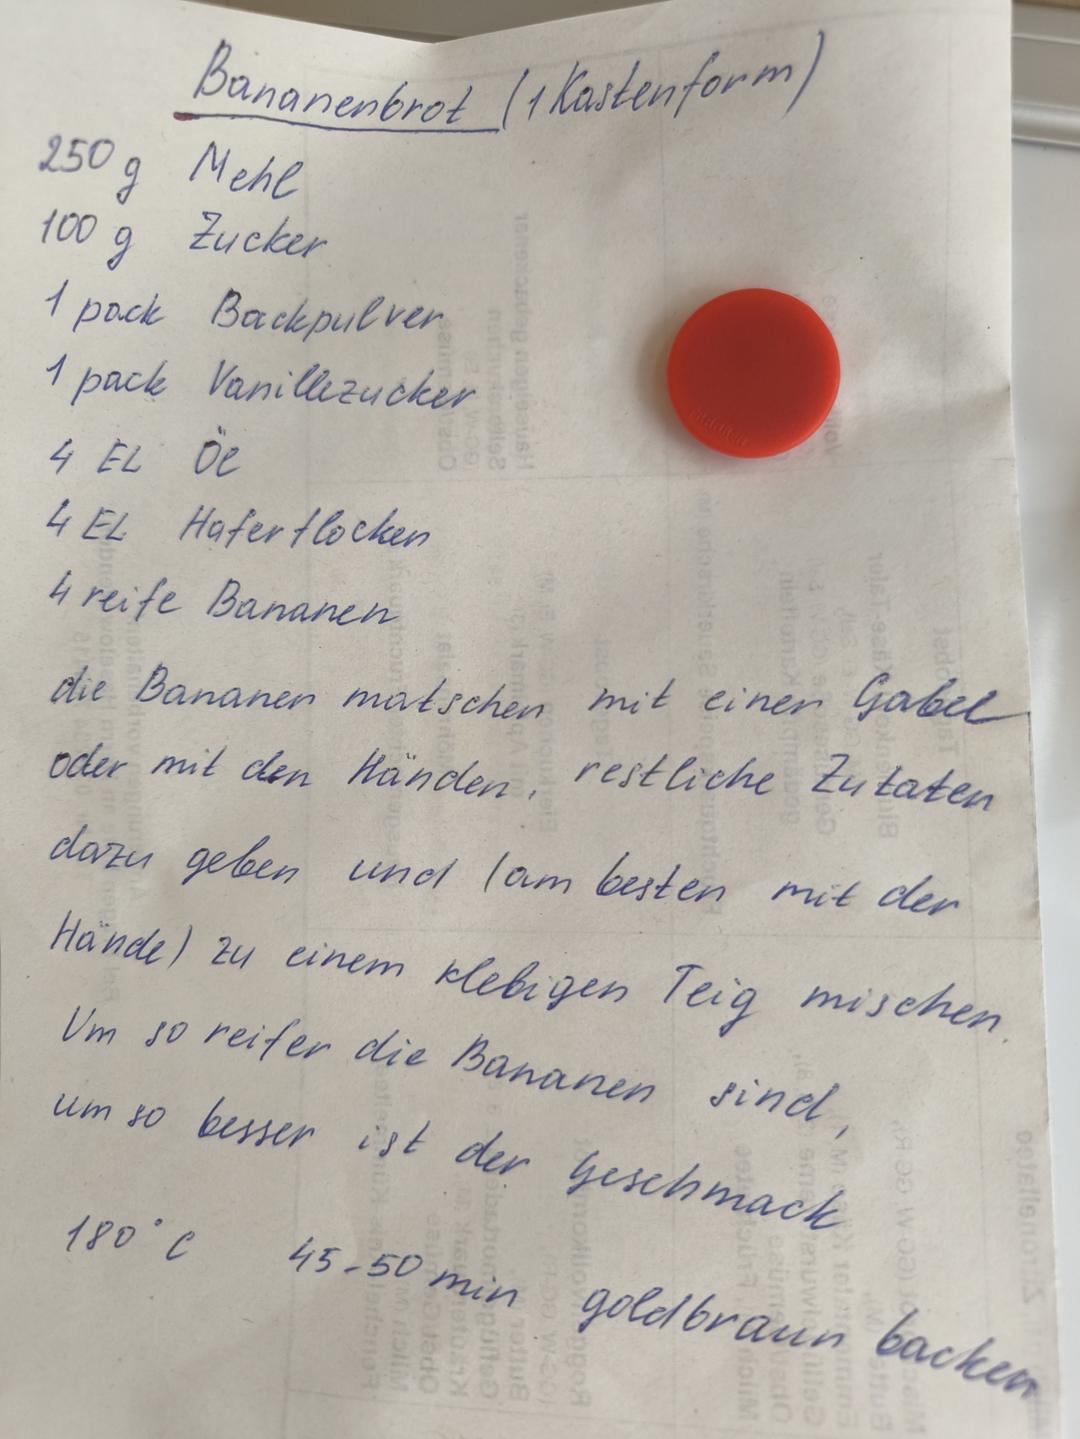 Bananenbrot (1 Kastenform)
250 g Mehl
100 g Zucker
1 pack Backpulver
1 pack Vanillezucker
4 EL Öl
4 EL Haferflocken
4 reife Bananen
die Bananen matschen mit einer Gabel
oder mit den Händen, restliche Zutaten
dazu geben und (am besten mit der
Hände) zu einem klebigen Teig mischen.
Um so reifer die Bananen sind,
um so besser ist der Geschmack
180°C 45-50 min goldbraun backen